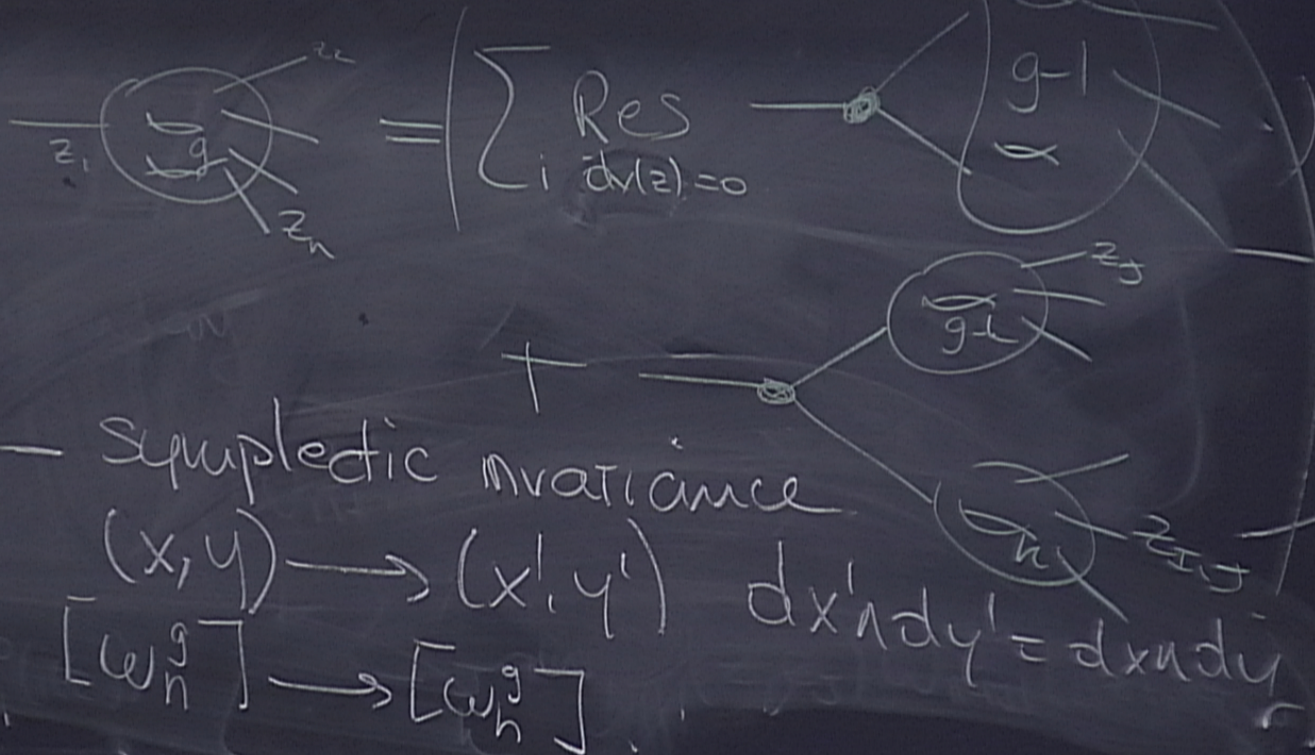 z₁ g z₂ zₙ = ( Σ_i Res dx(z)=0 g-1
+ g-h z_J
h z_{I\J}
— symplectic invariance
(x,y) → (x',y') dx'∧dy' = dx∧dy
[ω_n^g] → [ω_n^g].